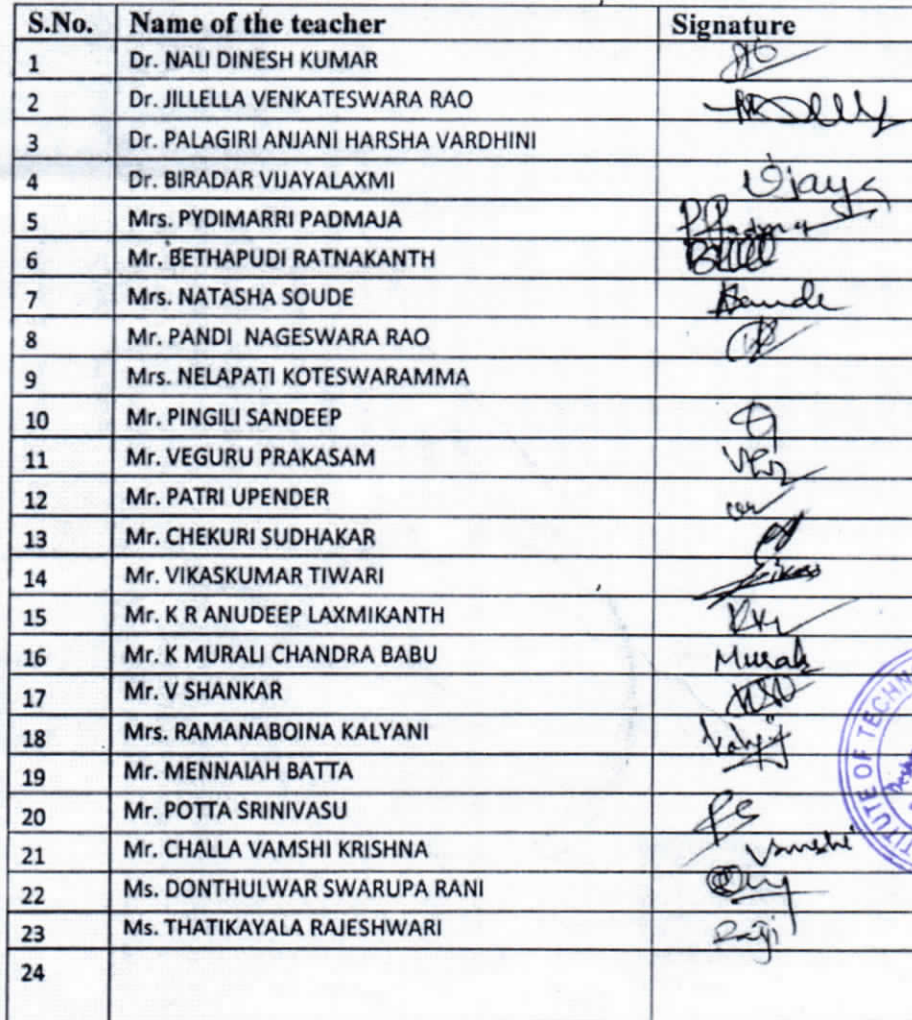 S.No. Name of the teacher Signature
1 Dr. NALI DINESH KUMAR
2 Dr. JILLELLA VENKATESWARA RAO
3 Dr. PALAGIRI ANJANI HARSHA VARDHINI
4 Dr. BIRADAR VIJAYALAXMI Vijaya
5 Mrs. PYDIMARRI PADMAJA
6 Mr. BETHAPUDI RATNAKANTH
7 Mrs. NATASHA SOUDE
8 Mr. PANDI NAGESWARA RAO
9 Mrs. NELAPATI KOTESWARAMMA
10 Mr. PINGILI SANDEEP
11 Mr. VEGURU PRAKASAM
12 Mr. PATRI UPENDER
13 Mr. CHEKURI SUDHAKAR
14 Mr. VIKASKUMAR TIWARI
15 Mr. K R ANUDEEP LAXMIKANTH
16 Mr. K MURALI CHANDRA BABU Murali
17 Mr. V SHANKAR
18 Mrs. RAMANABOINA KALYANI
19 Mr. MENNAIAH BATTA
20 Mr. POTTA SRINIVASU
21 Mr. CHALLA VAMSHI KRISHNA Vamshi
22 Ms. DONTHULWAR SWARUPA RANI
23 Ms. THATIKAYALA RAJESHWARI
24
TITUTE OF TECHN